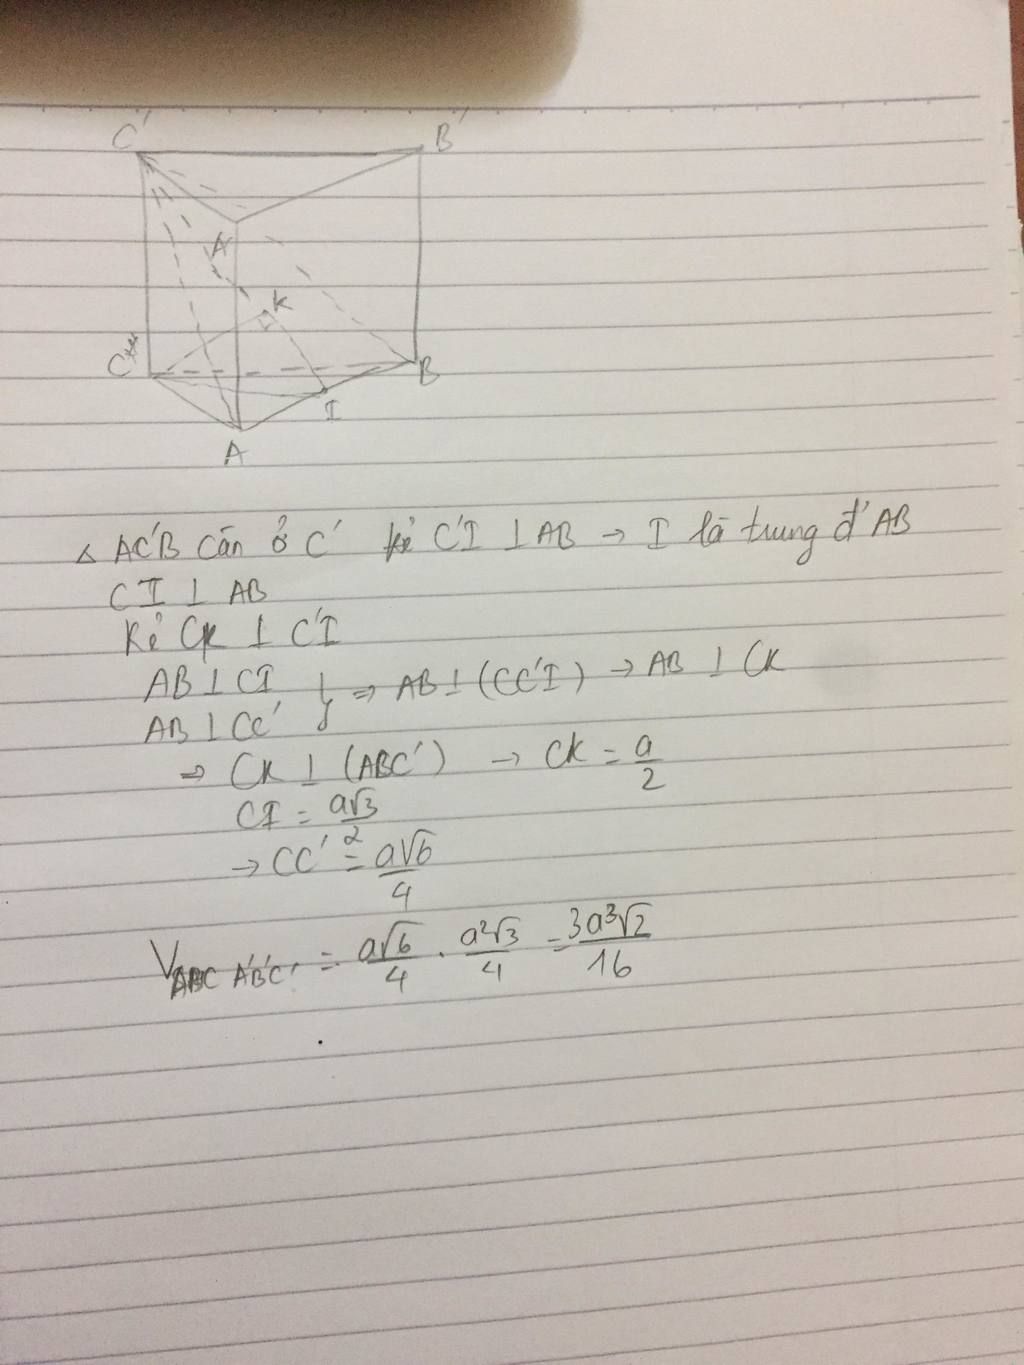 C' B'
A'
K
C B
I
A
Δ AC'B cân ở C' kẻ C'I ⊥ AB → I là trung đ' AB
CI ⊥ AB
Kẻ CK ⊥ C'I
AB ⊥ CI
AB ⊥ CC' } ⇒ AB ⊥ (CC'I) → AB ⊥ CK
⇒ CK ⊥ (ABC') → CK = a/2
CI = a√3/2
→ CC' = a√6/4
V ABC A'B'C' = a√6/4 . a²√3/4 = 3a³√2/16